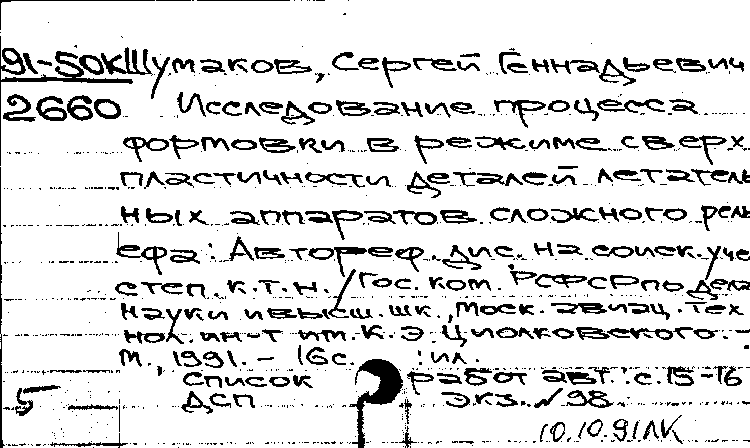 91-50К Шумаков, Сергей Геннадьевич
2660 Исследование процесса
формовки в режиме сверх
пластичности деталей летатель
ных аппаратов сложного рель
ефа: Автореф. дис. на соиск. уче
степ. к.т.н. / Гос. ком. РСФСР по дела
науки и высш. шк., Моск. авиац. тех
нол. ин-т им. К. Э. Циолковского. -
М., 1991. - 16 с. : ил.
Список работ авт.: с. 15-16
5 ДСП экз. № 98.
10.10.91 ЛК